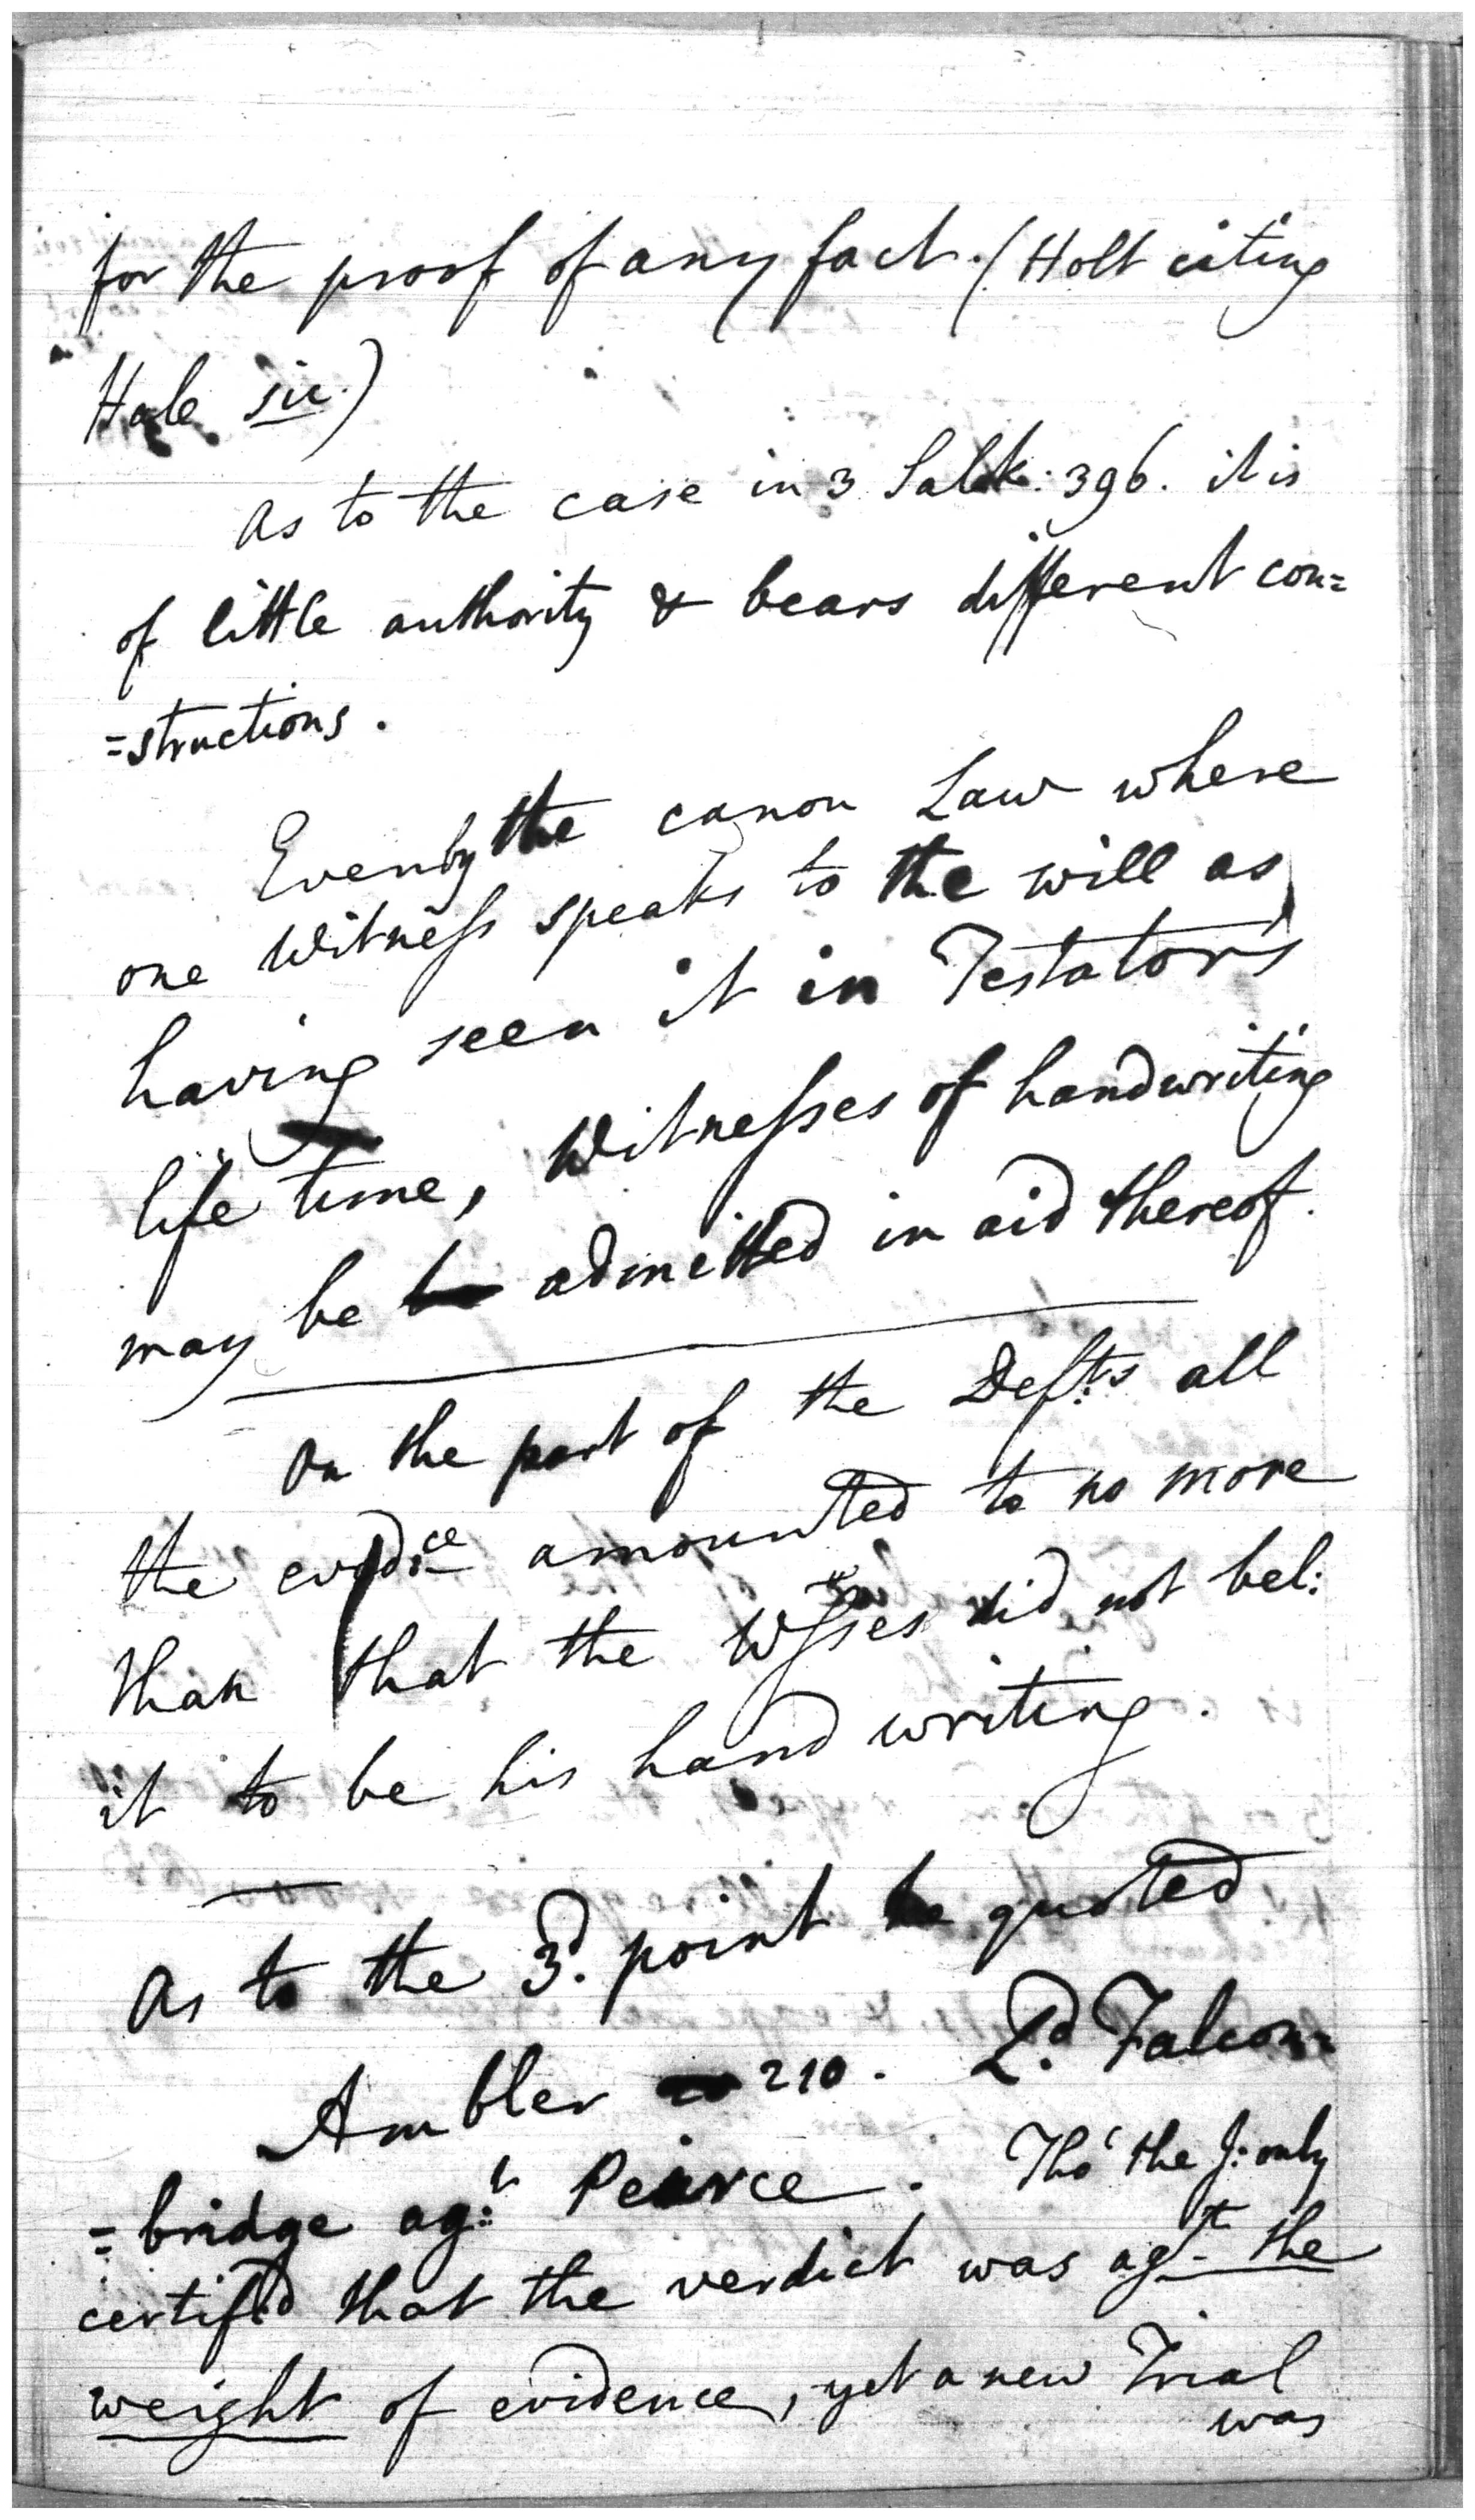 for the proof of any fact. (Holt citing
Hale sic.)
As to the case in 3 Salk: 396. it is
of little authority & bears different con=
=structions.
Even by the canon Law where
one Witness speaks to the will as
having seen it in Testator's
life time, Witnesses of handwriting
may be admitted in aid thereof.
On the part of the Defts. all
the evidce. amounted to no more
than that the Wsses did not bel:
it to be his hand writing.
As to the 3d. point he quoted
Ambler 210. Ld. Falcon=
=bridge agt. Peirce. Tho' the J: only
certifd that the verdict was agt. the
weight of evidence, yet a new Trial
was